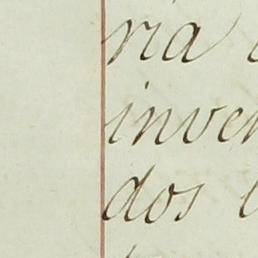 ria
inven
dos